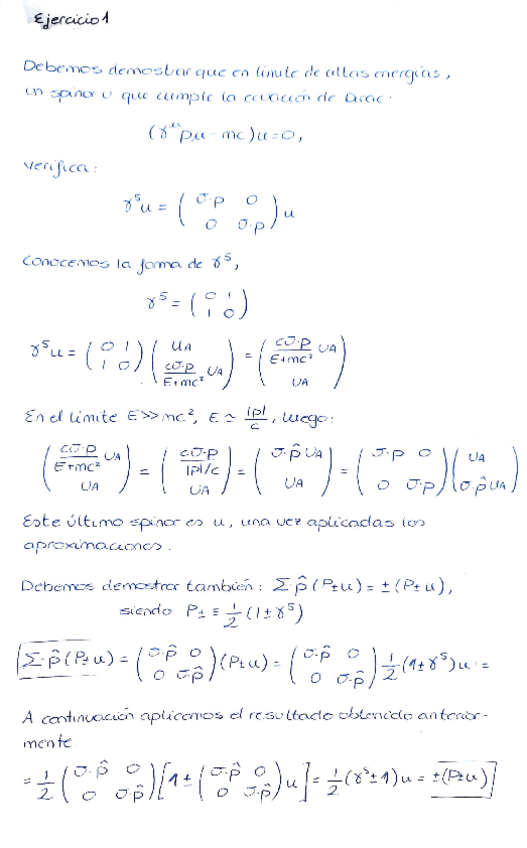 Ejercicio 1
Debemos demostrar que en límite de altas energías,
un spinor u que cumple la ecuación de Dirac:
(γ^μ pμ - mc)u = 0,
verifica:
γ⁵u = ( σ·p 0 ; 0 σ·p ) u
Conocemos la forma de γ⁵,
γ⁵ = ( 0 1 ; 1 0 )
γ⁵u = ( 0 1 ; 1 0 ) ( uA ; cσ·p/E+mc² uA ) = ( cσ·p/E+mc² uA ; uA )
En el límite E>>mc², E ≃ |p|/c, luego:
( cσ·p/E+mc² uA ; uA ) = ( cσ·p/|p|/c ; uA ) = ( σ·p̂ uA ; uA ) = ( σ·p 0 ; 0 σ·p ) ( uA ; σ·p̂ uA )
Este último spinor es u, una vez aplicadas las
aproximaciones.
Debemos demostrar también: Σ·p̂ (P±u) = ±(P±u),
siendo P± ≡ 1/2 (1±γ⁵)
Σ·p̂ (P±u) = ( σ·p̂ 0 ; 0 σ·p̂ ) (P±u) = ( σ·p̂ 0 ; 0 σ·p̂ ) 1/2 (1±γ⁵)u =
A continuación aplicamos el resultado obtenido anterior-
mente
= 1/2 ( σ·p̂ 0 ; 0 σ·p̂ ) [ 1 ± ( σ·p̂ 0 ; 0 σ·p̂ ) u ] = 1/2 (γ⁵±1)u = ±(P±u)